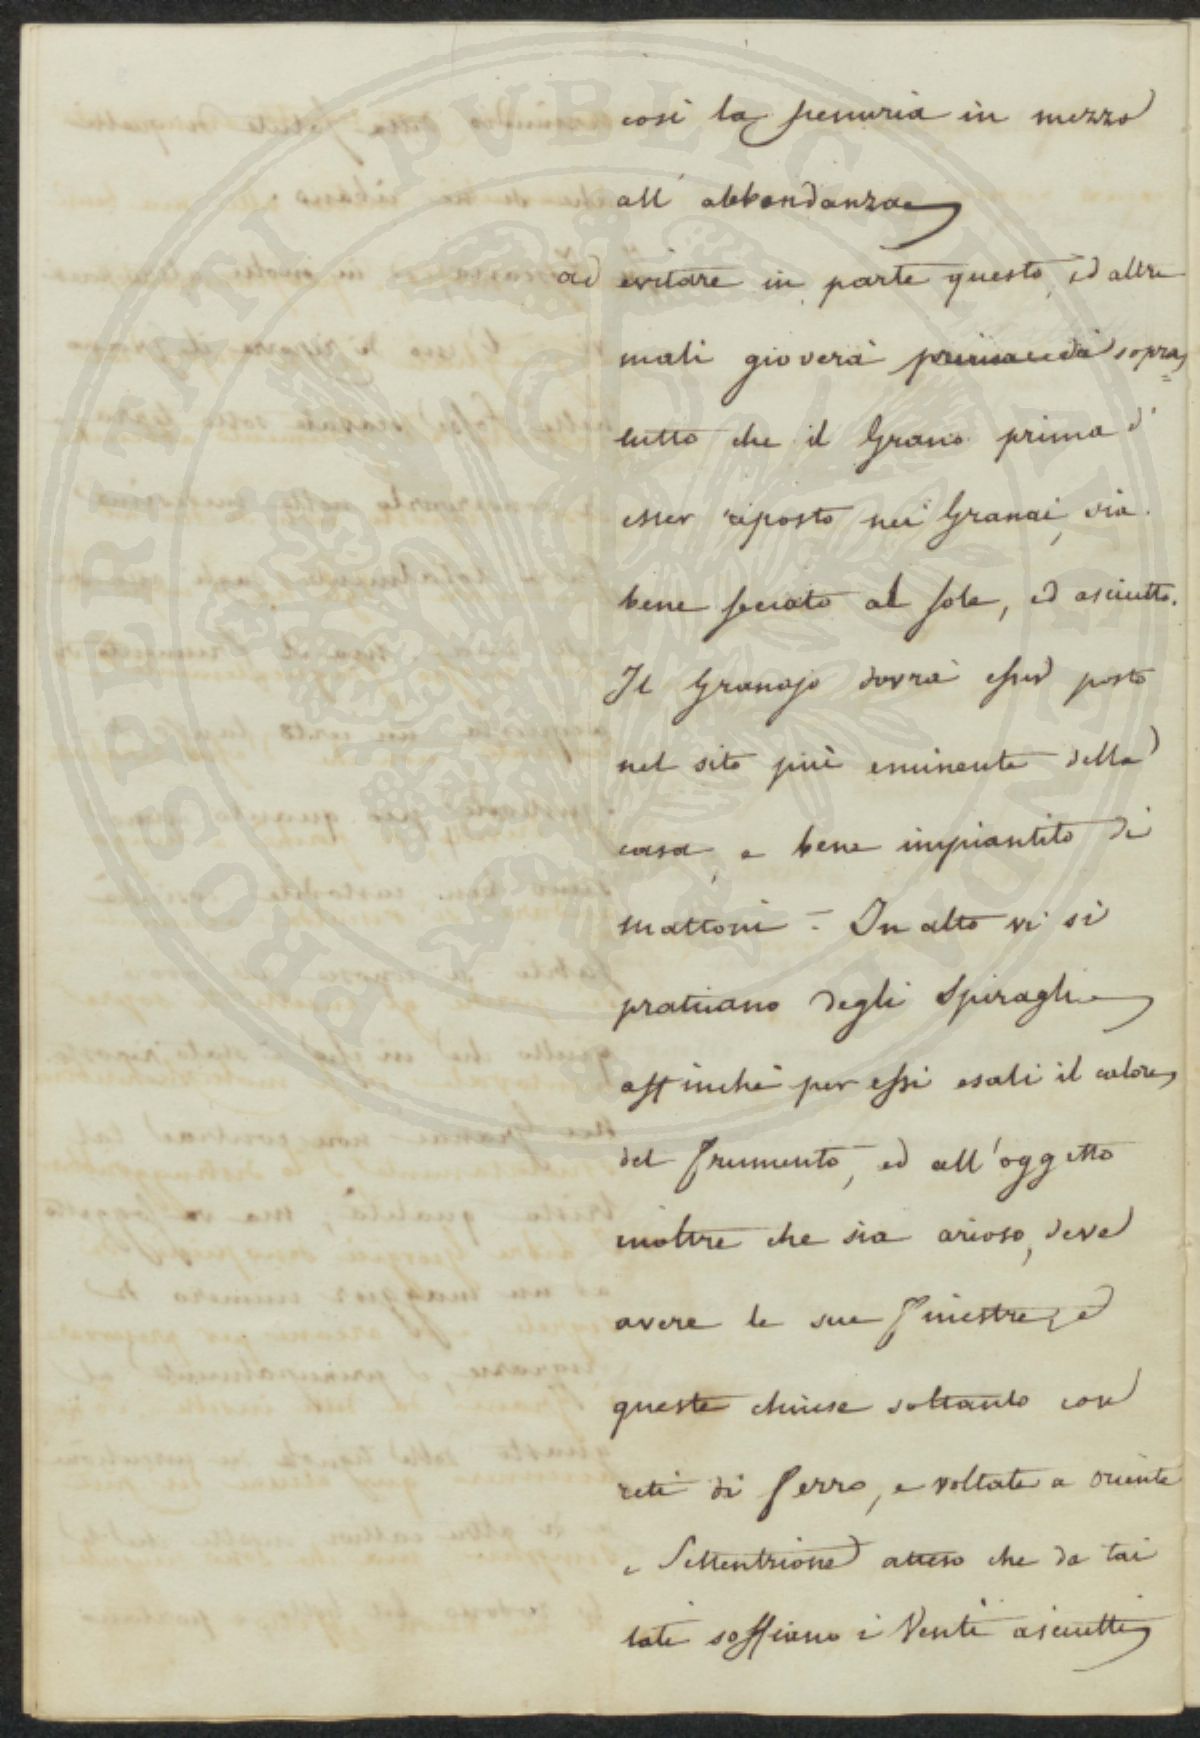 così la penuria in mezzo
all' abbondanza
ad evitare in parte questo, ed altri
mali gioverà sopra
tutto che il Grano prima d'
esser riposto nei Granai, sia
bene seccato al sole, ed asciutto.
Il Granajo dovrà esser posto
nel sito più eminente della
casa, e bene impiantito di
mattoni - In alto vi si
praticano degli Spiragli
affinchè per essi esali il calore
del frumento, ed all'oggetto
inoltre che sia arioso, deve
avere le sue finestre, e
queste chiuse soltanto con
reti di ferro, e voltate a oriente
e Settentrione atteso che da tai
lati soffiano i Venti asciutti
PROSPERITATI PUBLICAE AUGENDAE